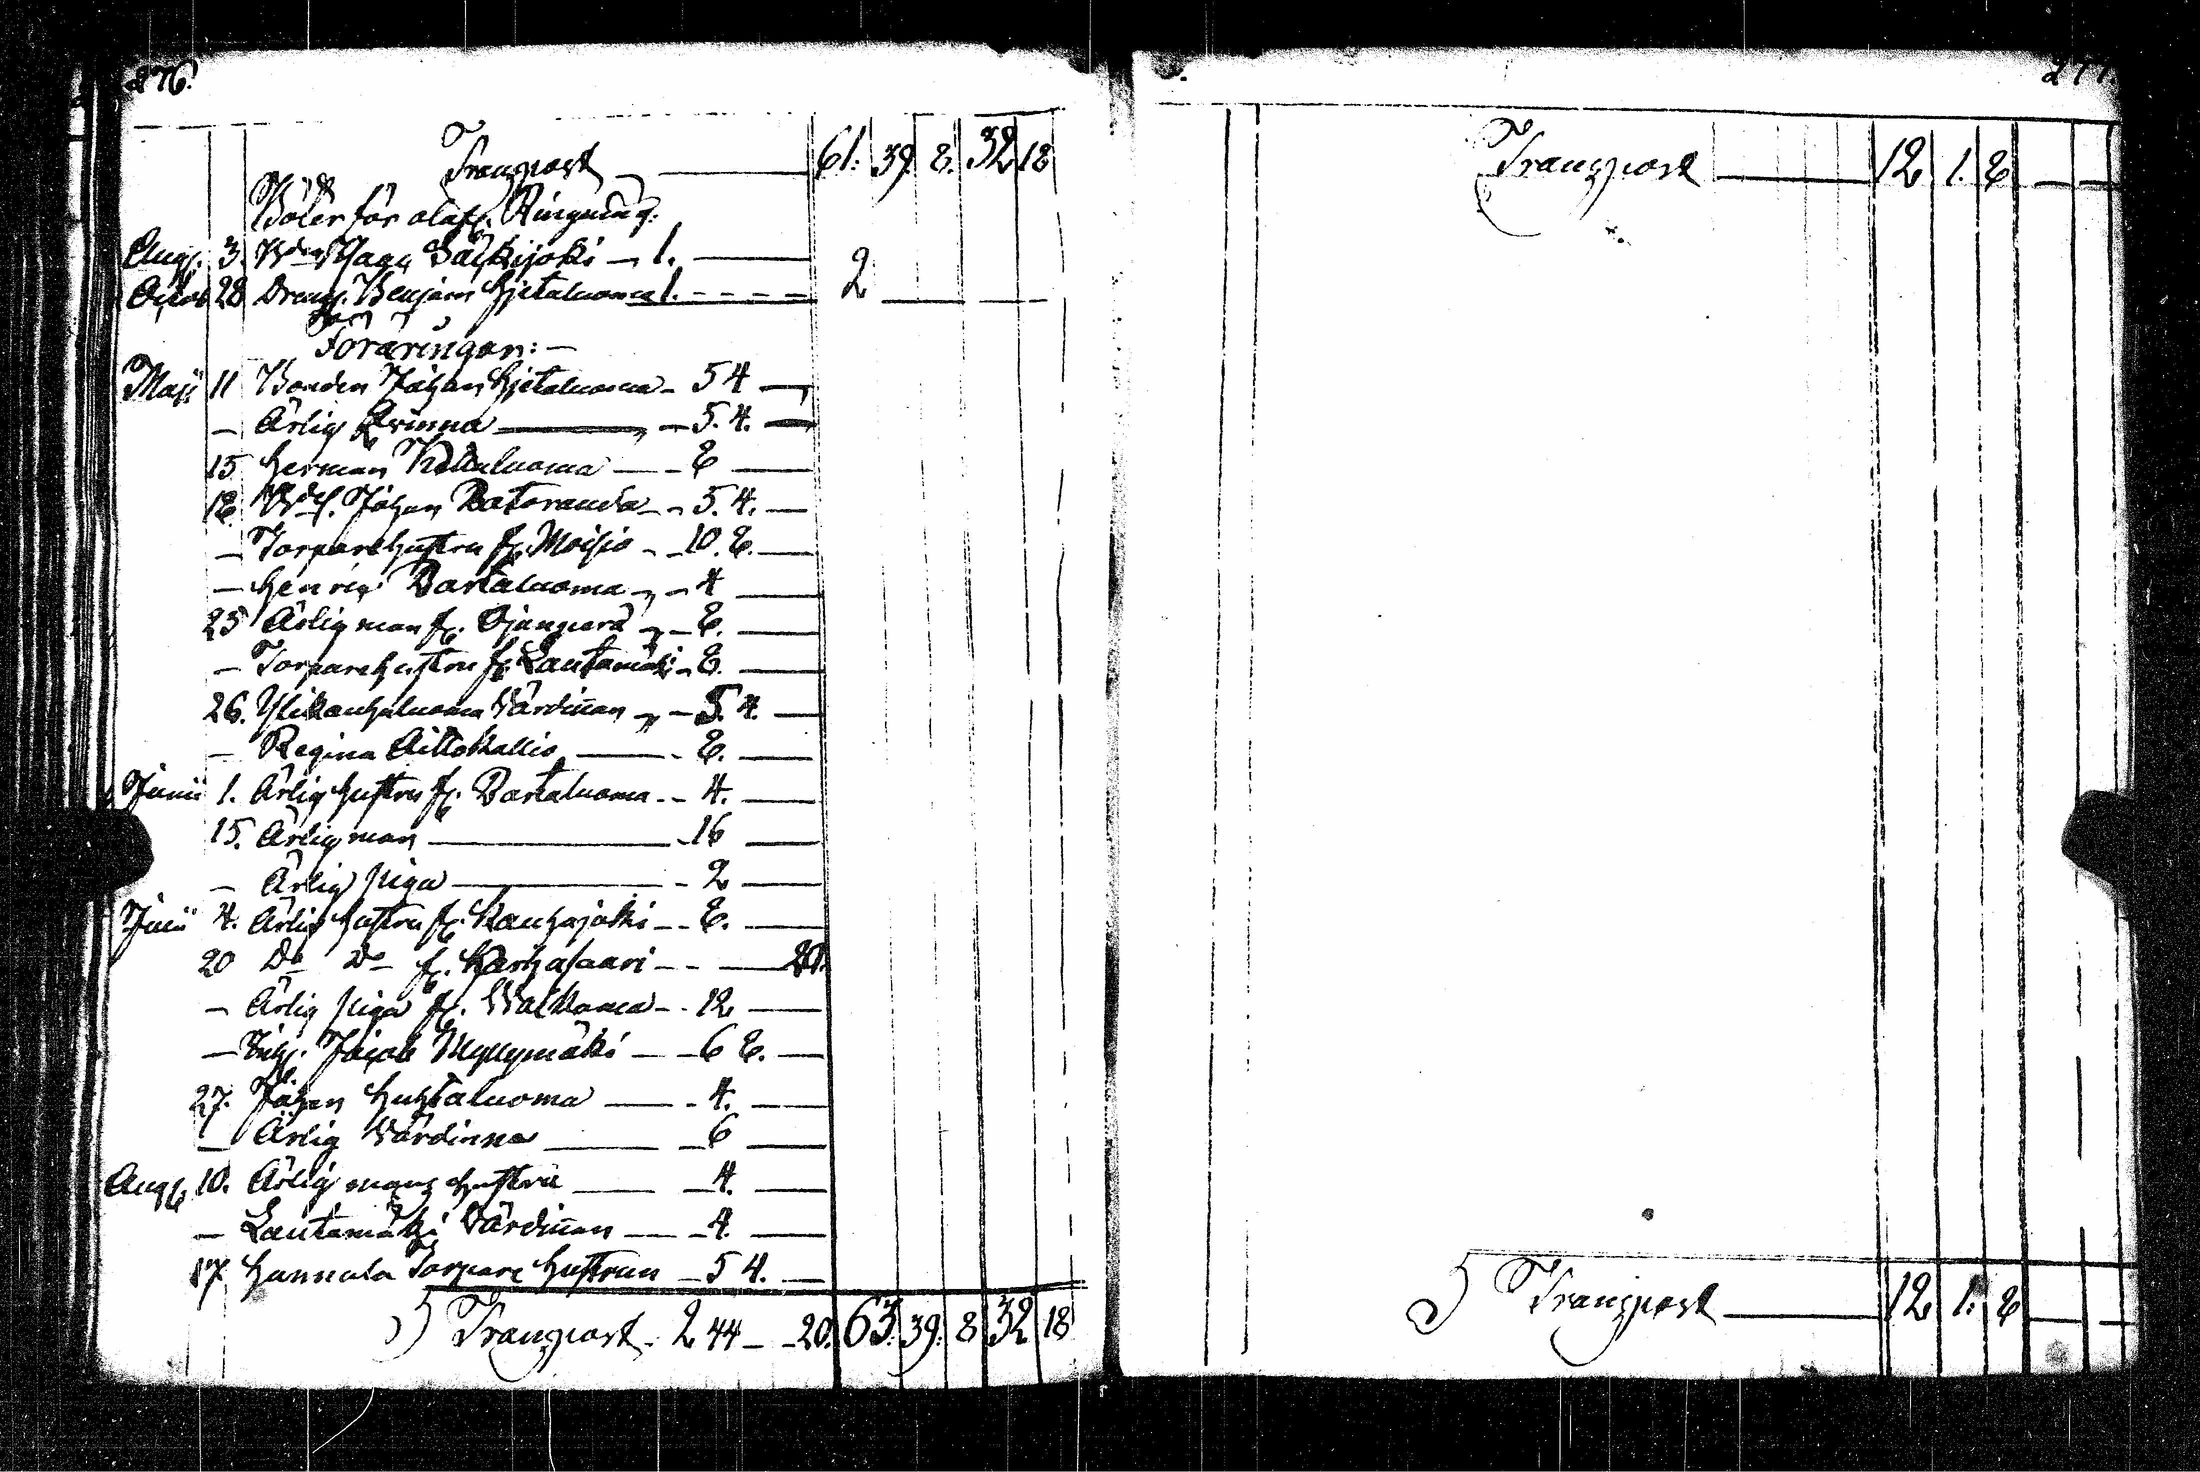 276.
Transport — 61: 39. 8. 32 18
Böter för olaf. Ringning:
Aug. 3. Säckijoki — 1. —
Octob 28 Dreng. Benjam Hjetaluoma 1. - - - 2
Föräringar: —
Maji 11 Bonden Johan Hjetaluoma - 5 4 —
— Ärlig Qvinna — 5. 4. —
15 Herman Kettaluoma — 8 —
18. Johan Ratoranda — 5. 4. —
— Torparehustru fr. Moisio - 10. 8. —
— Henric Partaluoma - 4 —
25 Ärlig man fr. Ojanperä - 8. —
— Torparehustru fr. Lautamäki - 8. —
26. Ylikauhaluoma Värdinnan - 5. 4. —
— Regina Aittokallio — 8. —
Junii 1. Ärlig hustru fr. Partaluoma - 4. —
15. Ärlig man — 16 —
— Ärlig piga — 2 —
Julii 4. Ärlig hustru fr. Kauhajoki - 8. —
20 Do Do fr. Karhasaari - — 20.
— Ärlig piga fr. - 12 —
— Jacob Myllymäki — 6 8. —
27. Johan Huhtaluoma — 4. —
— Ärlig Värdinna — 6 —
Aug. 10. Ärlig mans hustru — 4. —
— Lautamäki Värdinnan — 4. —
17. Hannula Torpare Hustrun — 5 4. —
Transport - 2 44 — 20. 63: 39: 8 32 18
277.
Transport — 12 1. 8 — —
Transport — 12 1. 8 — —